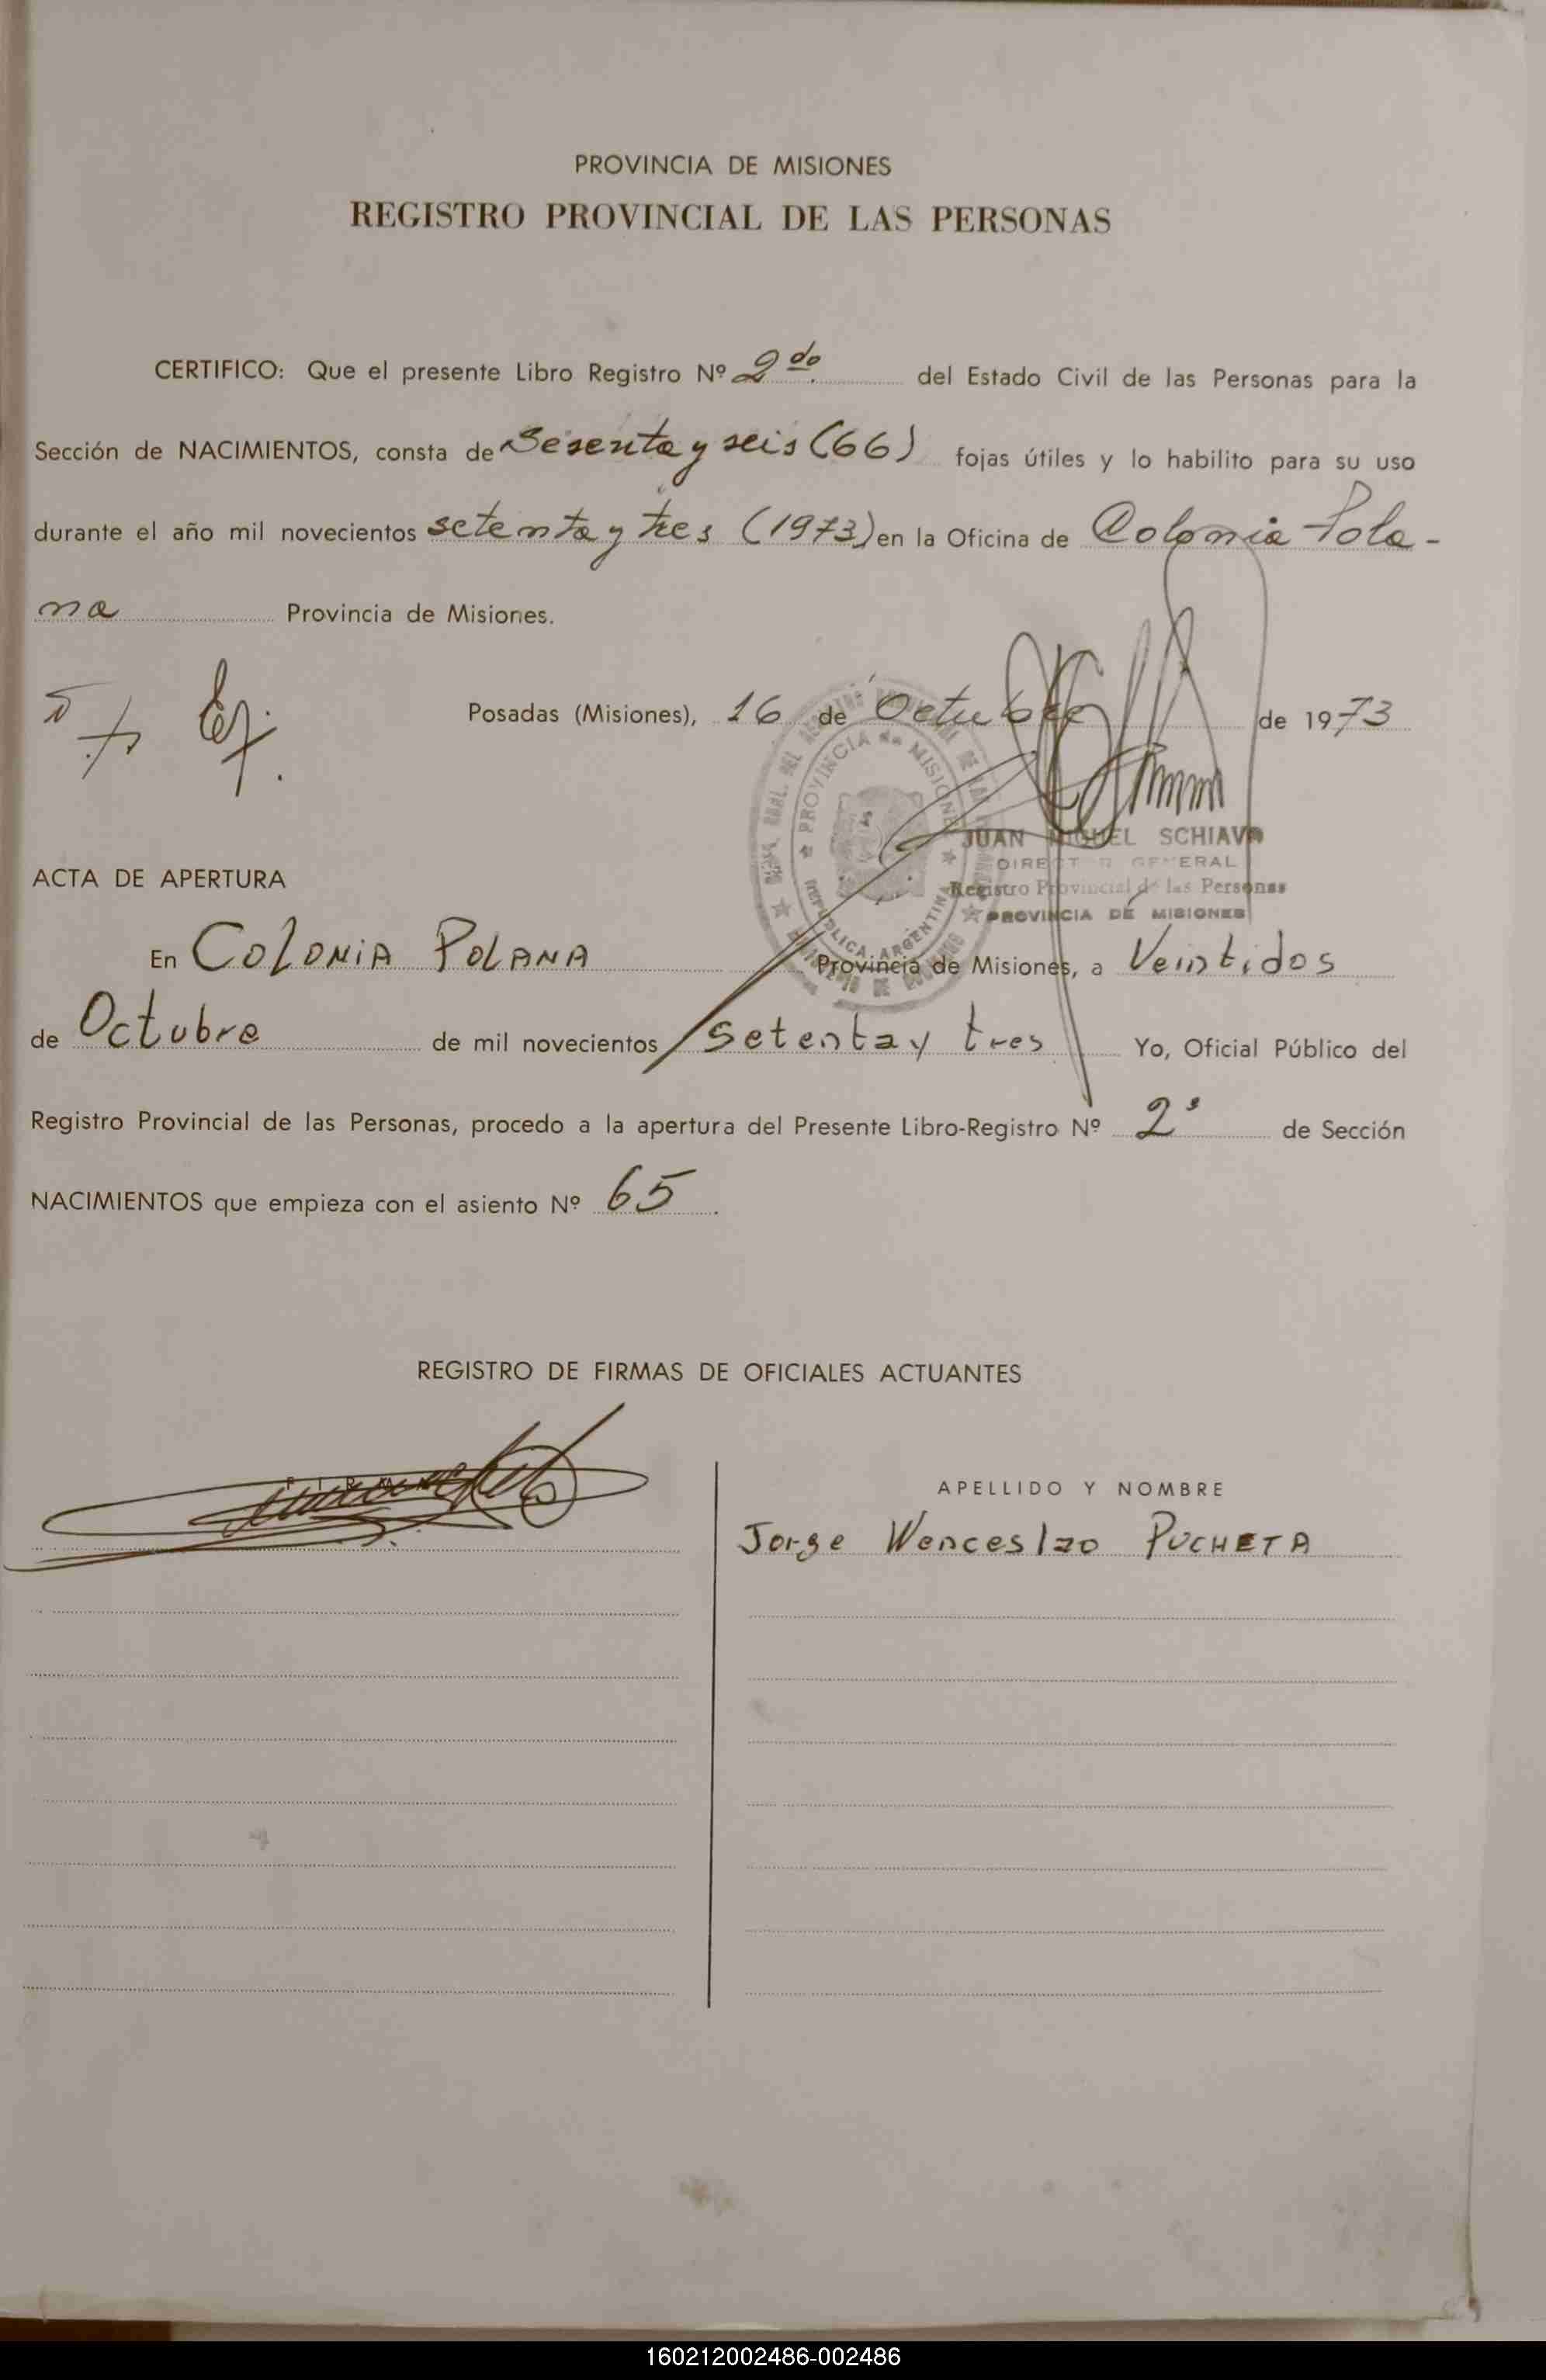 PROVINCIA DE MISIONES
REGISTRO PROVINCIAL DE LAS PERSONAS
CERTIFICO: Que el presente Libro Registro Nº 2do. del Estado Civil de las Personas para la
Sección de NACIMIENTOS, consta de Sesenta y seis (66) fojas útiles y lo habilito para su uso
durante el año mil novecientos setenta y tres (1973) en la Oficina de Colonia Pola-
na Provincia de Misiones.
Ej.
Posadas (Misiones), 16 de Octubre de 1973
PROVINCIA de MISIONES
REPUBLICA ARGENTINA
JUAN MIGUEL SCHIAVO
DIRECTOR GENERAL
Registro Provincial de las Personas
PROVINCIA DE MISIONES
ACTA DE APERTURA
En COLONIA POLANA Provincia de Misiones, a Veintidos
de Octubre de mil novecientos setenta y tres Yo, Oficial Público del
Registro Provincial de las Personas, procedo a la apertura del Presente Libro-Registro Nº 2º de Sección
NACIMIENTOS que empieza con el asiento Nº 65.
REGISTRO DE FIRMAS DE OFICIALES ACTUANTES
APELLIDO Y NOMBRE
Jorge Wenceslao PUCHETA
160212002486-002486